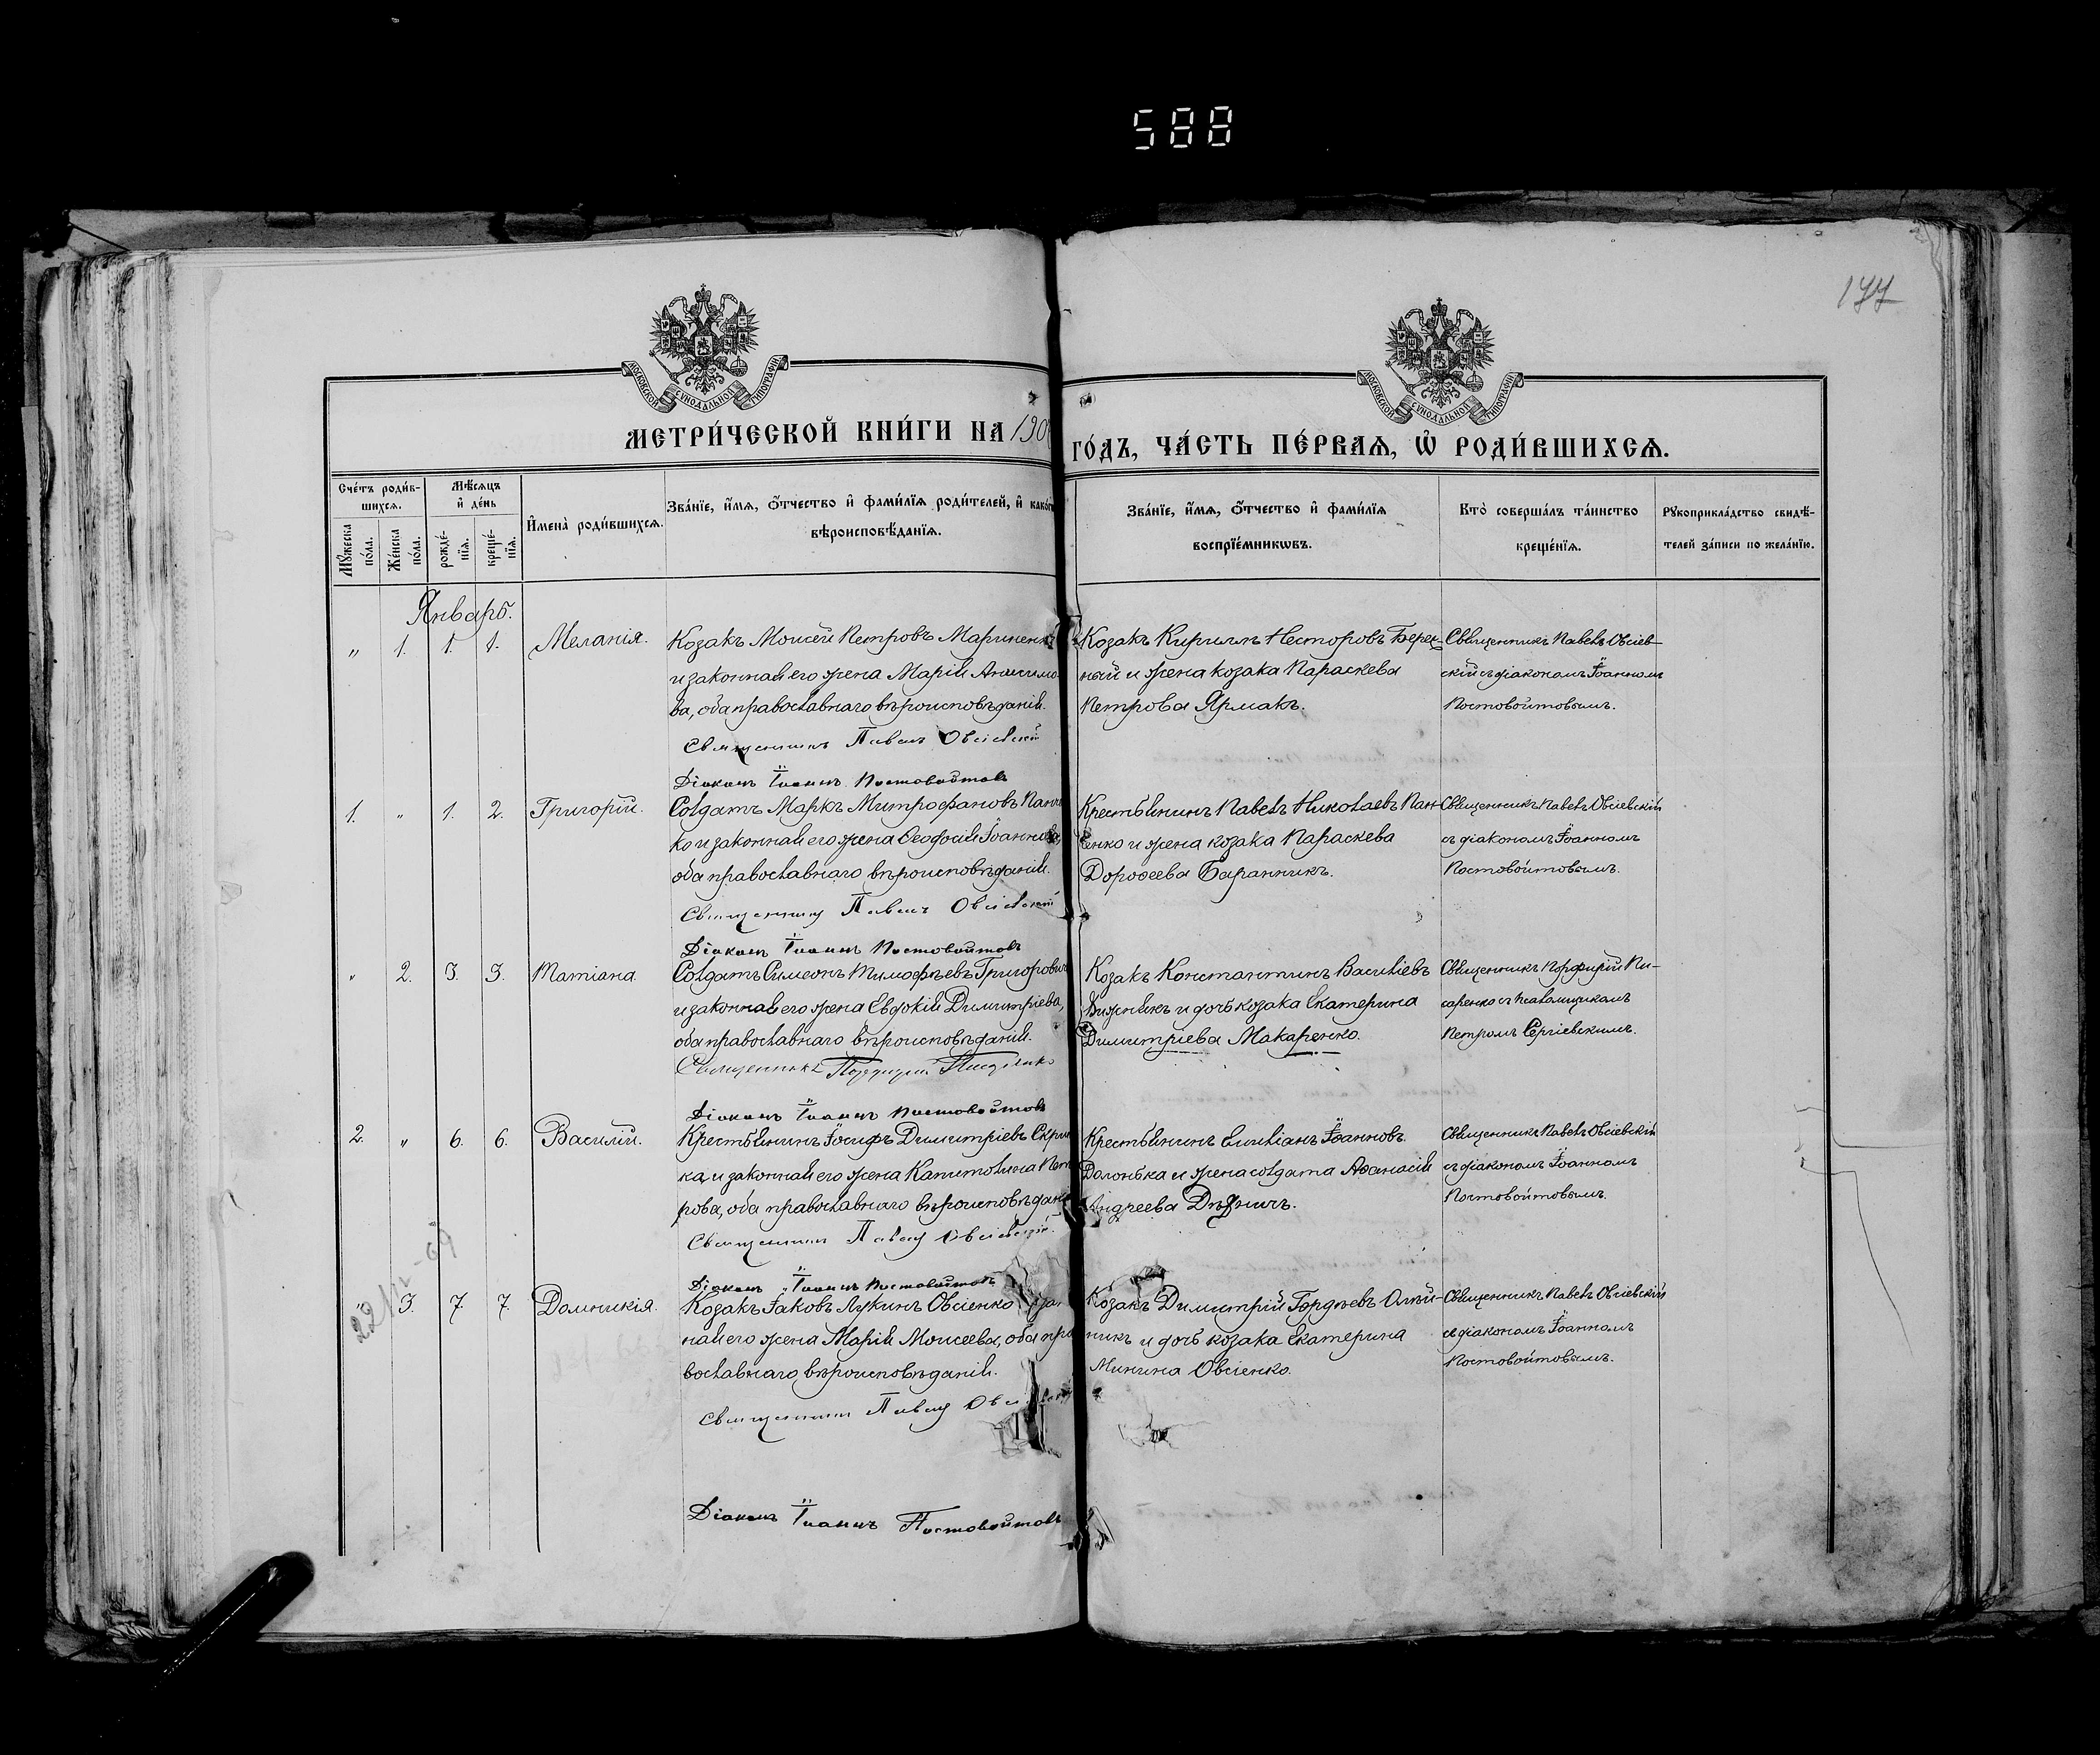 588
177
МОСКОВСКОЙ СУНОДАЛЬНОЙ ТИПОГРАФІИ
МОСКОВСКОЙ СУНОДАЛЬНОЙ ТИПОГРАФІИ
МЕТРИ́ЧЕСКОЙ КНИ́ГИ НА 190
ГО́ДЪ, ЧА́СТЬ ПЕ́РВАѦ, Ѡ҆ РОДИ́ВШИХСѦ.
Сче́тъ роди́в-
шихсѧ.
Мꙋ́жеска по́ла.
Же́нска по́ла.
Мѣ́сѧцъ
и҆ де́нь
рожде́-нїѧ.
креще́-нїѧ.
И҆мена̀ роди́вшихсѧ.
Зва́нїе, и҆́мѧ, ѻ҆́тчество и҆ фами́лїѧ роди́телей, и҆ како́г
вѣроисповѣ́данїѧ.
Зва́нїе, и҆́мѧ, ѻ҆́тчество и҆ фами́лїѧ
воспрїе́мникѡвъ.
Кто̀ соверша́лъ та́инство
креще́нїѧ.
Рꙋкоприкла́дство свидѣ́-
телей за́писи по жела́нїю.
Январь.
" 1. 1. 1. Меланія.
Козакъ Моисей Петровъ Маринен
и законная его жена Марія Анисимо
ва, оба православнаго вѣроисповѣданія.
Священникъ Павелъ Овсіевскій
Діаконъ Іоаннъ Постовойтовъ
Козакъ Кириллъ Несторовъ Берез-
ный и жена козака Параскева
Петрова Ярмакъ.
Священникъ Павелъ Овсіев-
скій съ діакономъ Іоанномъ
Постовойтовымъ.
1. " 1. 2. Григорій.
Солдатъ Маркъ Митрофановъ Панч
ко и законная его жена Ѳеодосія Іоаннова,
оба православнаго вѣроисповѣданія.
Священникъ Павелъ Овсіевскій
Діаконъ Іоаннъ Постовойтовъ
Крестьянинъ Павелъ Николаевъ Пан-
енко и жена козака Параскева
Дороѳеева Баранникъ.
Священникъ Павелъ Овсіевскій
съ діакономъ Іоанномъ
Постовойтовымъ.
" 2. 3. 3. Татіана
Солдатъ Симеонъ Тимофѣевъ Григорович
и законная его жена Евдокія Димитріева,
оба православнаго вѣроисповѣданія.
Священникъ Порфирій Писаренко
Діаконъ Іоаннъ Постовойтовъ
Козакъ Константинъ Василіевъ
и дочь козака Екатерина
Димитріева Макаренко.
Священникъ Порфирій Пи-
саренко съ псаломщикомъ
Петромъ Сергіевскимъ.
2. " 6. 6. Василій.
Крестьянинъ Іосифъ Димитріевъ Скрип
ка, и законная его жена Капитолина Пет
рова, оба православнаго вѣроисповѣдані
Священникъ Павелъ Овсіевскій.
Діаконъ Іоаннъ Постовойтовъ
Крестьянинъ Емиліанъ Іоанновъ
Долонька и жена солдата Аѳанасія
Андреева
Священникъ Павелъ Овсіевскій
съ діакономъ Іоанномъ
Постовойтовымъ.
3. 7. 7. Домникія.
Козакъ Іаковъ Лукинъ Овсіенко
ная его жена Марія Моисеева, оба пра
вославнаго вѣроисповѣданія.
Священникъ Павелъ
Діаконъ Іоаннъ Постовойтовъ
Козакъ Димитрій Гордѣевъ Олій-
никъ и дочь козака Екатерина
Минина Овсіенко.
Священникъ Павелъ Овсіевскій
съ діакономъ Іоанномъ
Постовойтовымъ.